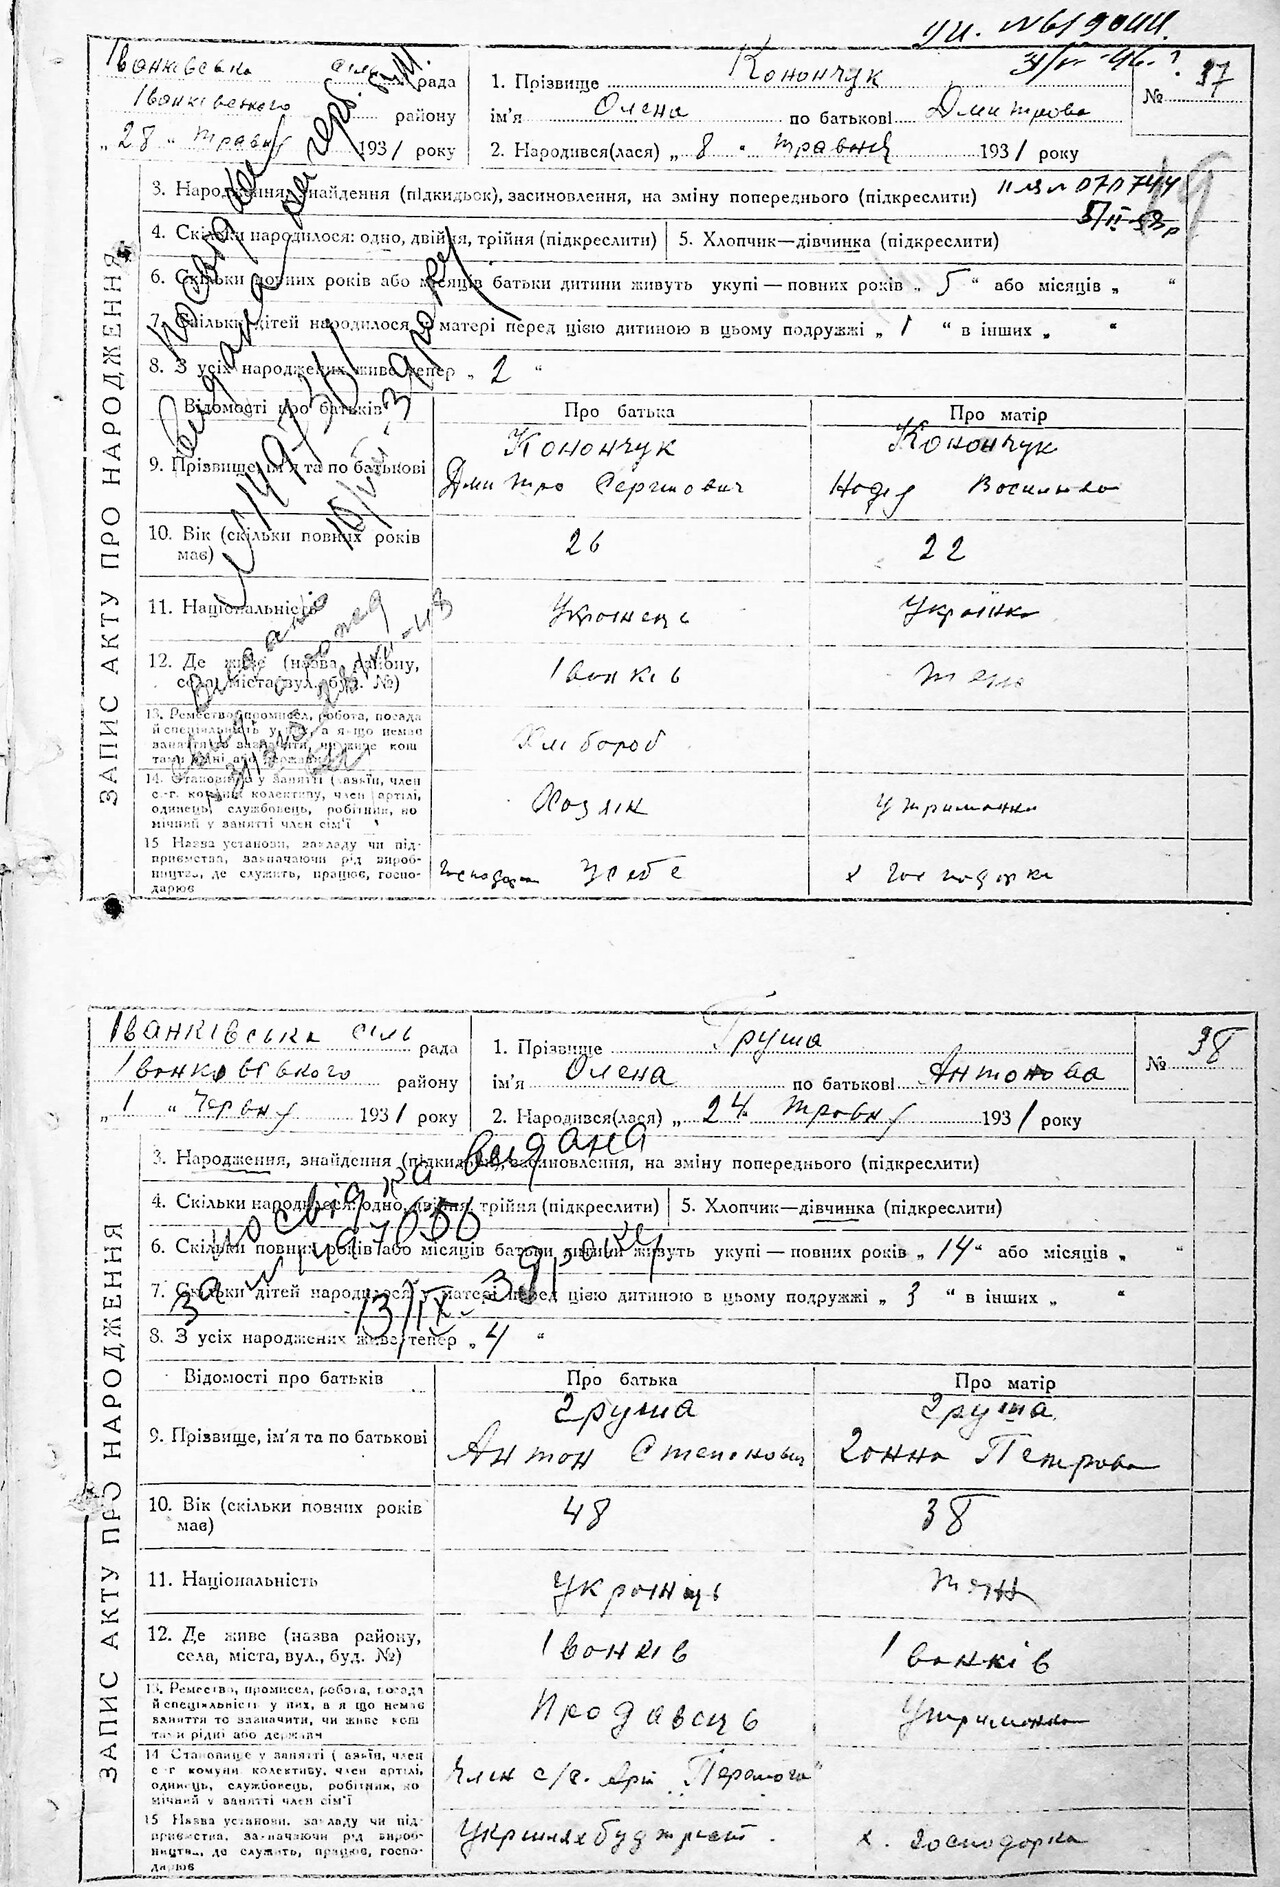 Іванківська сіль рада
Іванківського району
„ 28 " травня 1931 року
1. Прізвище Конончук
ім'я Олена по батькові Дмитрова
2. Народився(лася) „ 8 " травня 1931 року
№ 37
3. Народження, знайдення (підкидьок), засиновлення, на зміну попереднього (підкреслити)
4. Скільки народилося: одно, двійня, трійня (підкреслити)
5. Хлопчик—дівчинка (підкреслити)
6. Скільки повних років або місяців батьки дитини живуть укупі — повних років „ 5 " або місяців „ "
7. Скільки дітей народилося у матері перед цією дитиною в цьому подружжі „ 1 " в інших „ "
8. З усіх народжених живе тепер „ 2 "
Посвідка видана
№ 149730
Видано
ЗАПИС АКТУ ПРО НАРОДЖЕННЯ
Відомості про батьків
Про батька
Про матір
9. Прізвище, ім'я та по батькові
Конончук
Дмитро Сергійович
Конончук
Надія Василівна
10. Вік (скільки повних років має)
26
22
11. Національність
Українець
Українка
12. Де живе (назва району, села, міста, вул., буд. №)
Іванків
теж
13. Ремество, промисел, робота, посада
й спеціяльність у них, а я що немає
заняття то зазначити, чи живе кош
тами рідні або держави
Хлібороб
14. Становище у занятті (хазяїн, член
с.-г. комуни колективу, член артілі,
одинець, службовець, робітник, по
мічний у занятті член сім'ї
Хозяїн
утриманка
15 Назва установи, закладу чи під-
приємства, зазначаючи рід вироб-
ництва, де служить, працює, госпо-
дарює
господарює у себе
х господарка
Іванківська сіль рада
Іванковського району
„ 1 " Червня 1931 року
1. Прізвище Груша
ім'я Олена по батькові Антонова
2. Народився(лася) „ 24 травня 1931 року
№ 38
3. Народження, знайдення (підкидьок), засиновлення, на зміну попереднього (підкреслити)
4. Скільки народилося: одно, двійня, трійня (підкреслити)
5. Хлопчик—дівчинка (підкреслити)
6. Скільки повних років або місяців батьки дитини живуть укупі — повних років „ 14 " або місяців „ "
7. Скільки дітей народилося у матері перед цією дитиною в цьому подружжі „ 3 " в інших „ "
8. З усіх народжених живе тепер „ 4 "
посвідка видана
за №
13/IX-39 року
ЗАПИС АКТУ ПРО НАРОДЖЕННЯ
Відомості про батьків
Про батька
Про матір
9. Прізвище, ім'я та по батькові
Груша
Антон Степанович
Груша
Ганна Петрова
10. Вік (скільки повних років має)
48
38
11. Національність
Українець
теж
12. Де живе (назва району, села, міста, вул., буд. №)
Іванків
Іванків
13. Ремество, промисел, робота, посада
й спеціяльність у них, а я що немає
заняття то зазначити, чи живе кош
тами рідні або держави
Продавець
Утриманка
14 Становище у занятті (хазяїн, член
с-г комуни колективу, член артілі,
одинець, службовець, робітник, по
мічний у занятті член сім'ї
Член с/г. Арт „Перемога"
15 Назва установи, закладу чи під-
приємства, зазначаючи рід вироб-
ництва, де служить, працює, госпо-
дарює
Укршляхбудтрест.
х. господарка